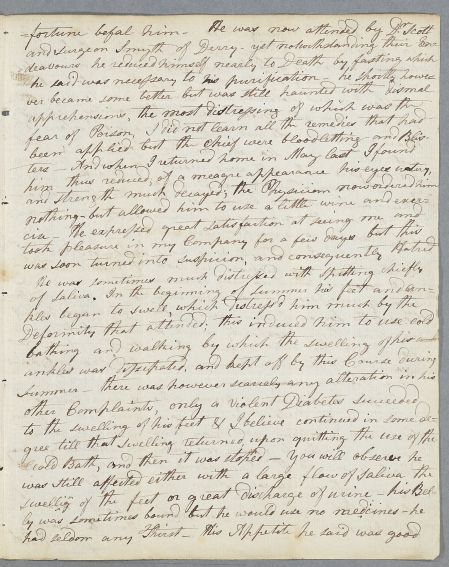 -fortune befal him – He was now attended by Dr Scott
and surgeon Smyth of Derry – yet notwithstanding their en-
deavours he reduced himself nearly to Death by fasting which
he said was necessary to his purification – he shortly howe-
ver became some better but was still haunted with dismal
apprehensions, the most distressing of which was the
fear of Poison, I did not learn all the remedies that had
been applied but the chief were bloodletting and Blis-
ters – And when I returned home in May last I found
him thus reduced, of a meagre appearance his eyes watery,
and strength much decayed; the Physician now ordered him
nothing – but allowed him to use a little wine and exer-
cise. He expressed great Satisfaction at seeing me and
took pleasure in my Company for a few days but this
was soon turned into suspicion, and consequently Hatred
He was sometimes much distressed with spitting chiefly
of Saliva. In the beginning of Summer his feet and an-
kles began to swell, which distress'd him much by the
Deformity that attended; this induced him to use cold
bathing and walking by which the swelling of his
ankles was dissipated, and kept off by this Course during
Summer – there was however scarcely any alteration in his
other Complaints, only a violent Diabetes succeeded
to the swelling of his feet & I believe continued in some de-
gree till that Swelling returned, upon quitting the use of the
Cold Bath, and then it was stoped – You will observe he
was still affected either with a large flow of Saliva the
swelling of the feet or great discharge of urine – his Bel-
ly was sometimes bound but he would use no medicines – he
had seldom any Thirst – His Appetite he said was good